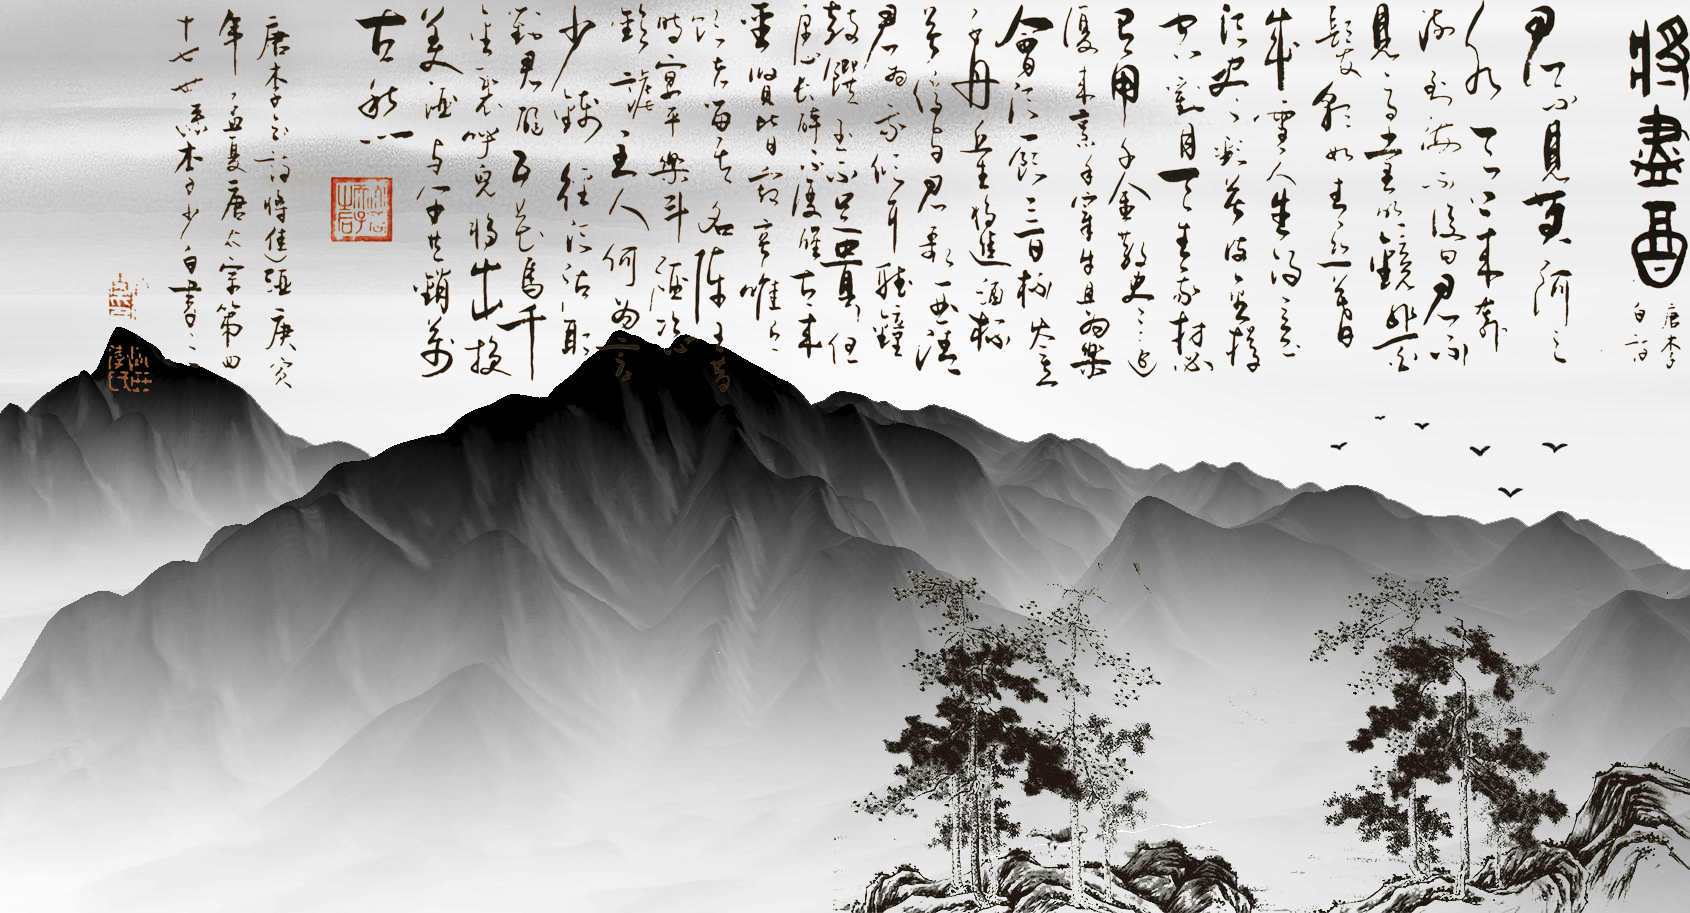 將盡酉
唐李
白詩
君不見黃河之
水天上來奔
流到海不復回君不
見高堂明鏡悲白
髮朝如青絲暮
成雪人生得意
須盡歡莫使金樽
空對月天生我材必
有用千金散盡還
復來烹羊宰牛且為樂
會須一飲三百杯岑夫
子丹丘生將進酒杯
莫停與君歌一曲請
君為我傾耳聽鐘
鼓饌玉不足貴但
願長醉不復醒古來
聖賢皆寂寞惟有
飲者留其名陳王昔
時宴平樂斗酒恣
歡謔主人何為言
少錢徑須沽取
對君酌五花馬千
金裘呼兒將出換
美酒與爾同銷萬
古愁
唐李白詩將進酒庚寅
年孟夏唐太宗第四
十七世孫李子少白書